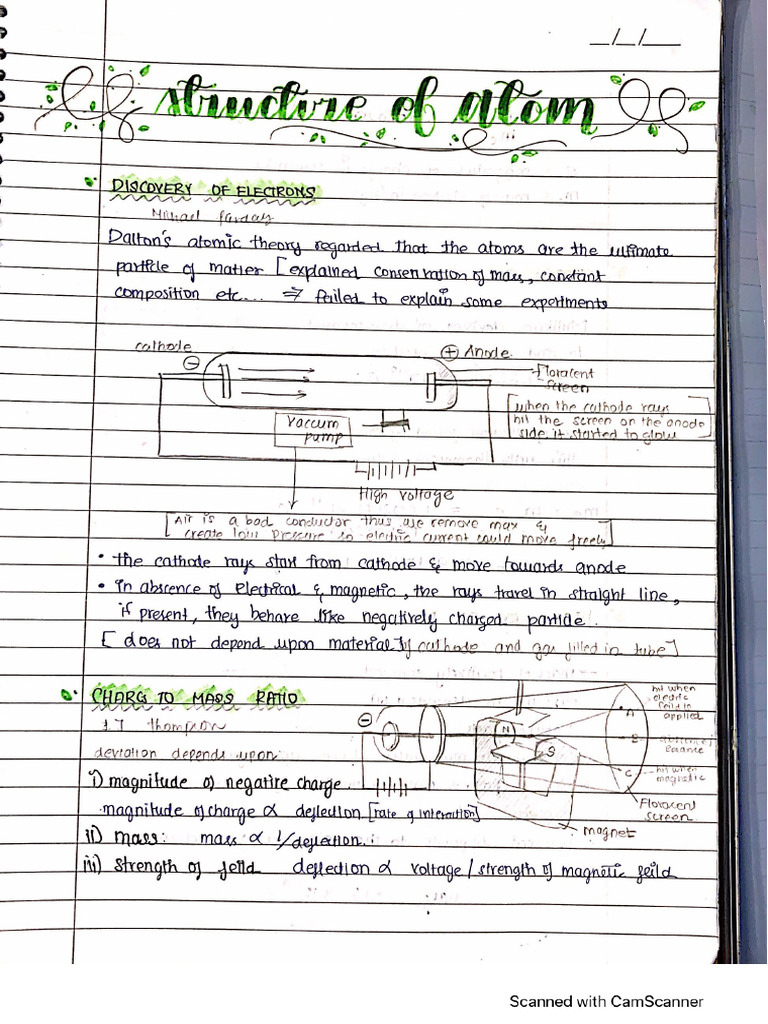 _/_/__
structure of atom
DISCOVERY OF ELECTRONS
Michael farday
Dalton's atomic theory regarded that the atoms are the ultimate
particle of matter [explained conservation of mass, constant
composition etc.... ⇒ failed to explain some experiments
cathode
⊖
⊕ Anode
Floracent
screen
[when the cathode rays
hit the screen on the anode
side it started to glow]
vaccum
pump
High voltage
[Air is a bad conductor thus we remove max &
create low pressure so electric current could move freely]
• the cathode rays start from cathode & move towards anode
• In abscence of electrical & magnetic, the rays travel in straight line,
if present, they behave like negatively charged particle.
[does not depend upon material of cathode and gas filled in tube]
CHARG TO MASS RATIO
J.J thompson
deviation depends upon
i) magnitude of negative charge.
magnitude of charge ∝ deflection [rate of interaction]
ii) mass: mass ∝ 1/deflection.
iii) strength of feild deflection ∝ voltage / strength of magnetic feild
⊖
N
S
hit when
electric
feild is
applied
A
B
C
hit when
magnetic
Floracent
screen
magnet
Scanned with CamScanner